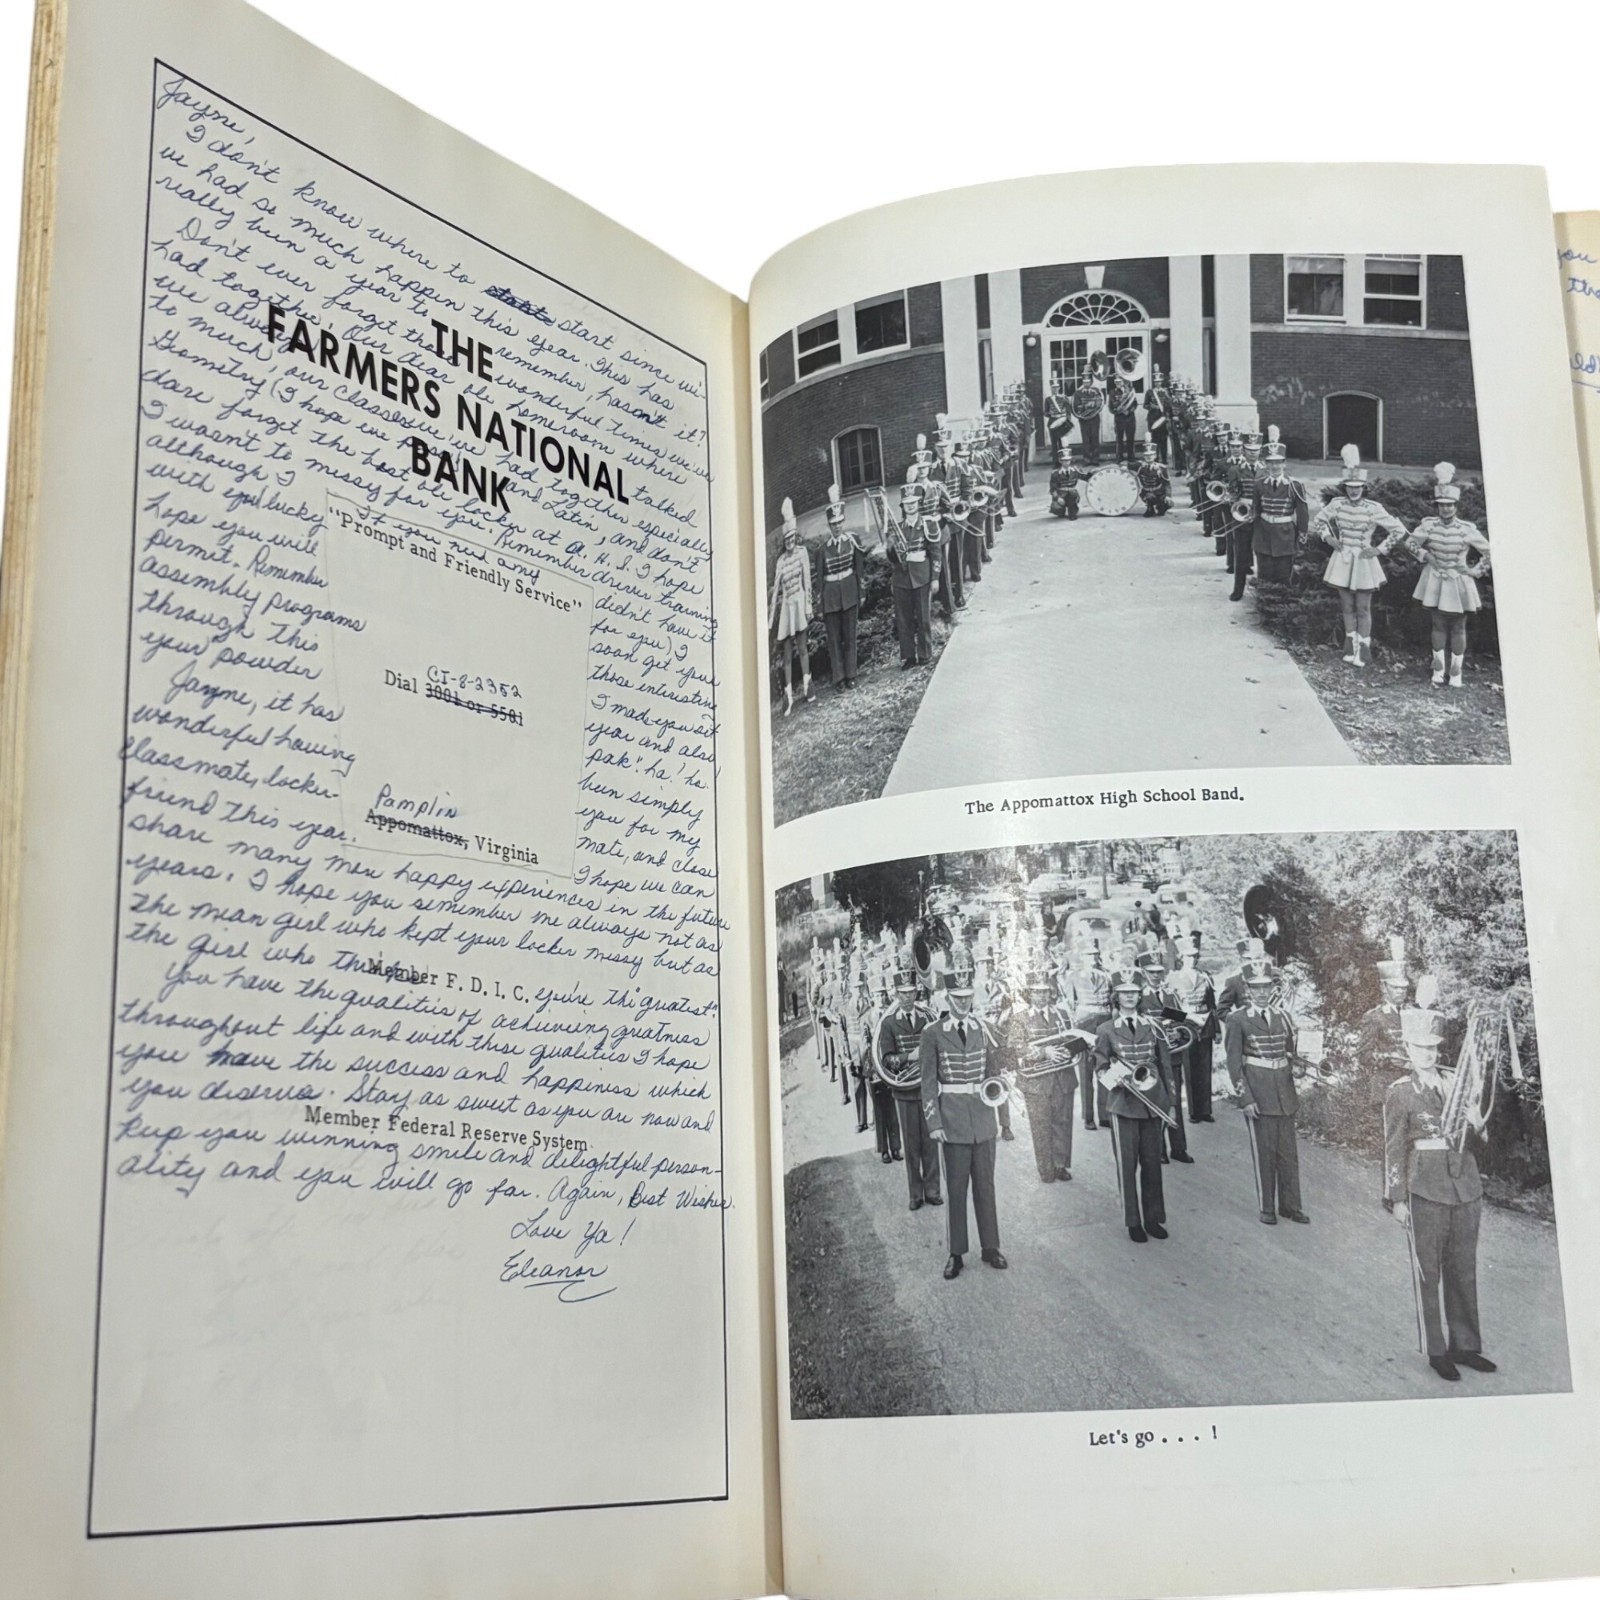 Jayne,
I don't know where to start since we've
we had so much happen this year. This has
really been a year to remember, hasn't it?
Don't ever forget those wonderful times we
had together, Our dear ole homeroom where
we always talked
THE
FARMERS NATIONAL
BANK
to much, our classes we had together especially
Geometry (I hope we pass) and Latin, and don't
dare forget the ole locker at A. H. S. I hope
I wasn't to messy for you. Remember driver training
although I didn't have it
with you lucky for you) I
If you need any
hope you will soon get your
permit. Remember those interesting
assembly programs I made you sit
through this year and also
your powder pak". ha! ha.
"Prompt and Friendly Service"
CI-8-2352
Dial 3001 or 5501
Jayne, it has been simply
wonderful having you for my
classmate, locker- mate, and close
friend this year. I hope we can
Pamplin
Appomattox, Virginia
share many more happy experiences in the future
years. I hope you remember me always not as
the mean girl who kept your locker messy but as
the girl who thinks you're the "greatest".
Member F. D. I. C.
You have the qualities of achieving greatness
throughout life and with these qualities I hope
you have the success and happiness which
you deserve. Stay as sweet as you are now and
Member Federal Reserve System
keep you winning smile and delightful person-
ality and you will go far. Again, Best Wishes.
Love Ya!
Eleanor
The Appomattox High School Band.
Let's go . . . !
you